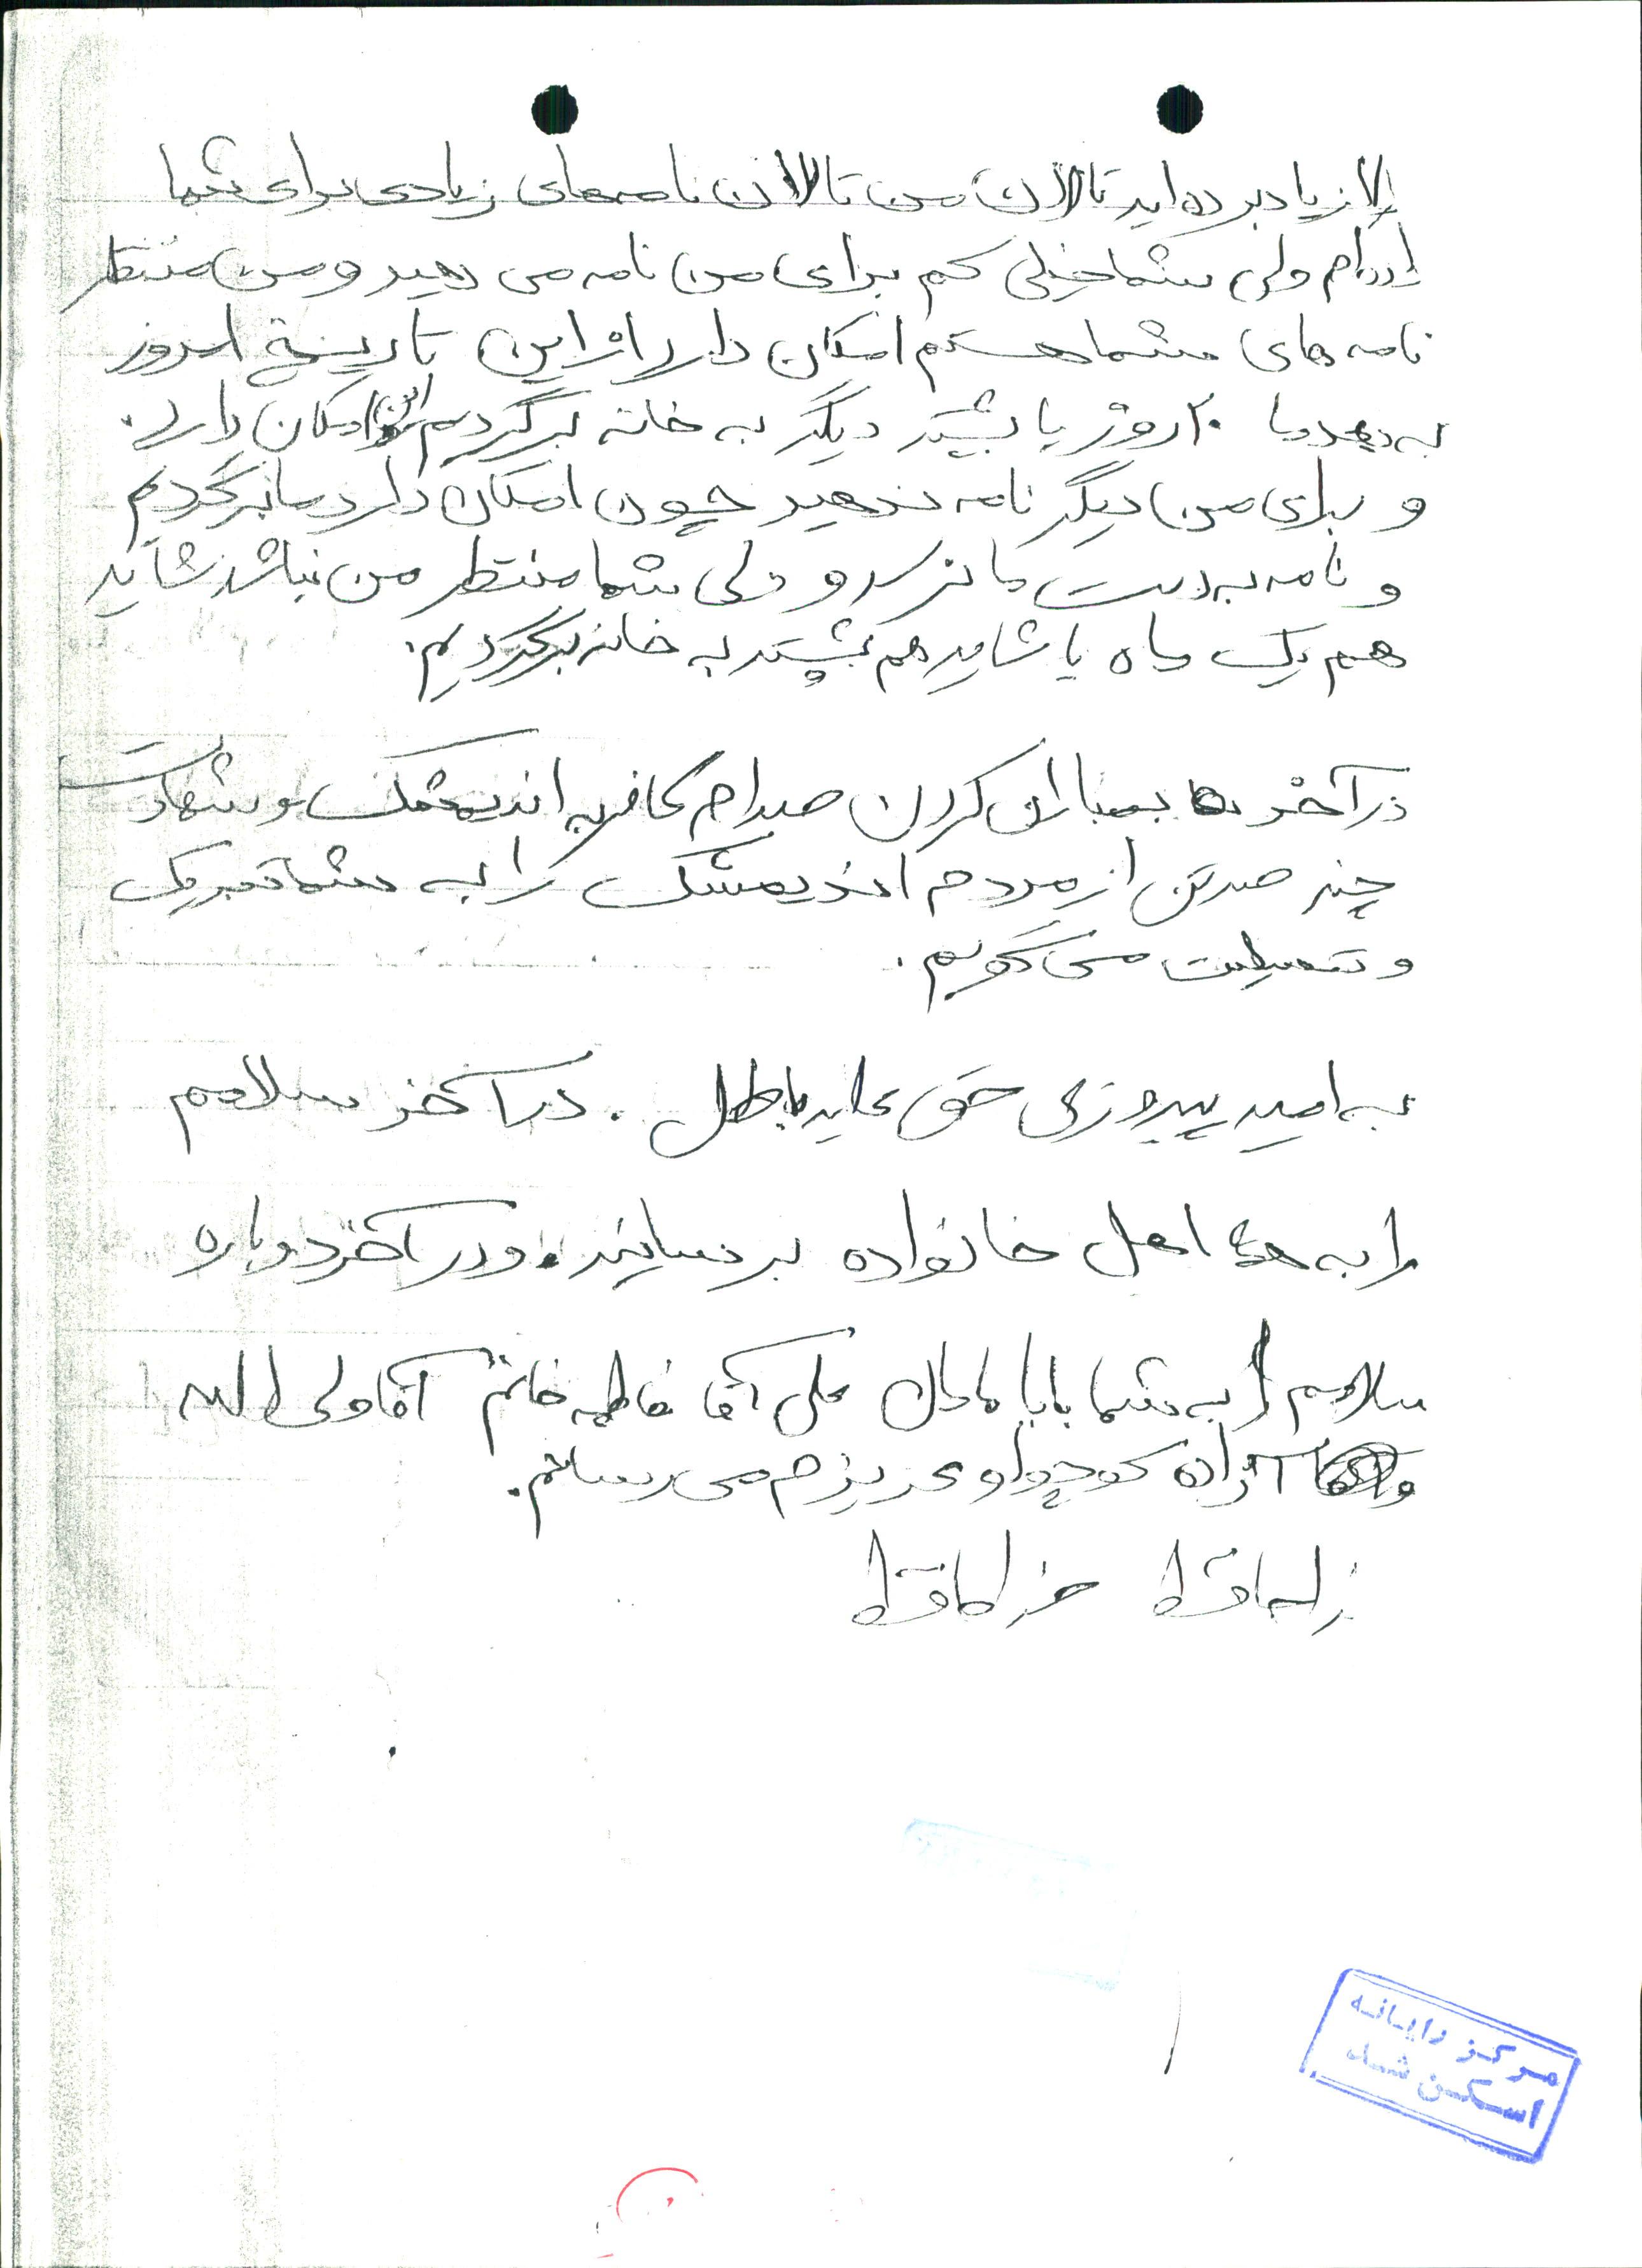 از یاد برده اید تا الان من تا الان نامه‌های زیادی برای شما
داده‌ام ولی شما خیلی کم برای من نامه می دهید و من منتظر
نامه های شما هستم امکان دارد از این تاریخ امروز
به بعد ما ۲۰ روز یا بیشتر دیگر به خانه برگردیم این امکان دارد.
و برای من دیگر نامه ندهید چون امکان دارد ما برگردیم
و نامه به دست ما نرسد و ولی شما منتظر من نباشد شاید
هم یک ماه یا شاید هم بیشتر به خانه برگردیم.
در آخر بمباران کردن صدام کافر به اندیمشک و شهادت
چند صد تن از مردم اندیمشک را به شما تبریک
و تسلیت می گویم.
به امید پیروزی حق علیه باطل. در آخر سلامم
را به همه اهل خانواده برسانید. و در آخر دوباره
سلامم را به شما بابا مامان علی آقا فاطمه خانم آقا ولی الله
آزاده کوچولو عزیزم می رسانم.
خداحافظ خداحافظ
مرکز رایانه
اسکن شد